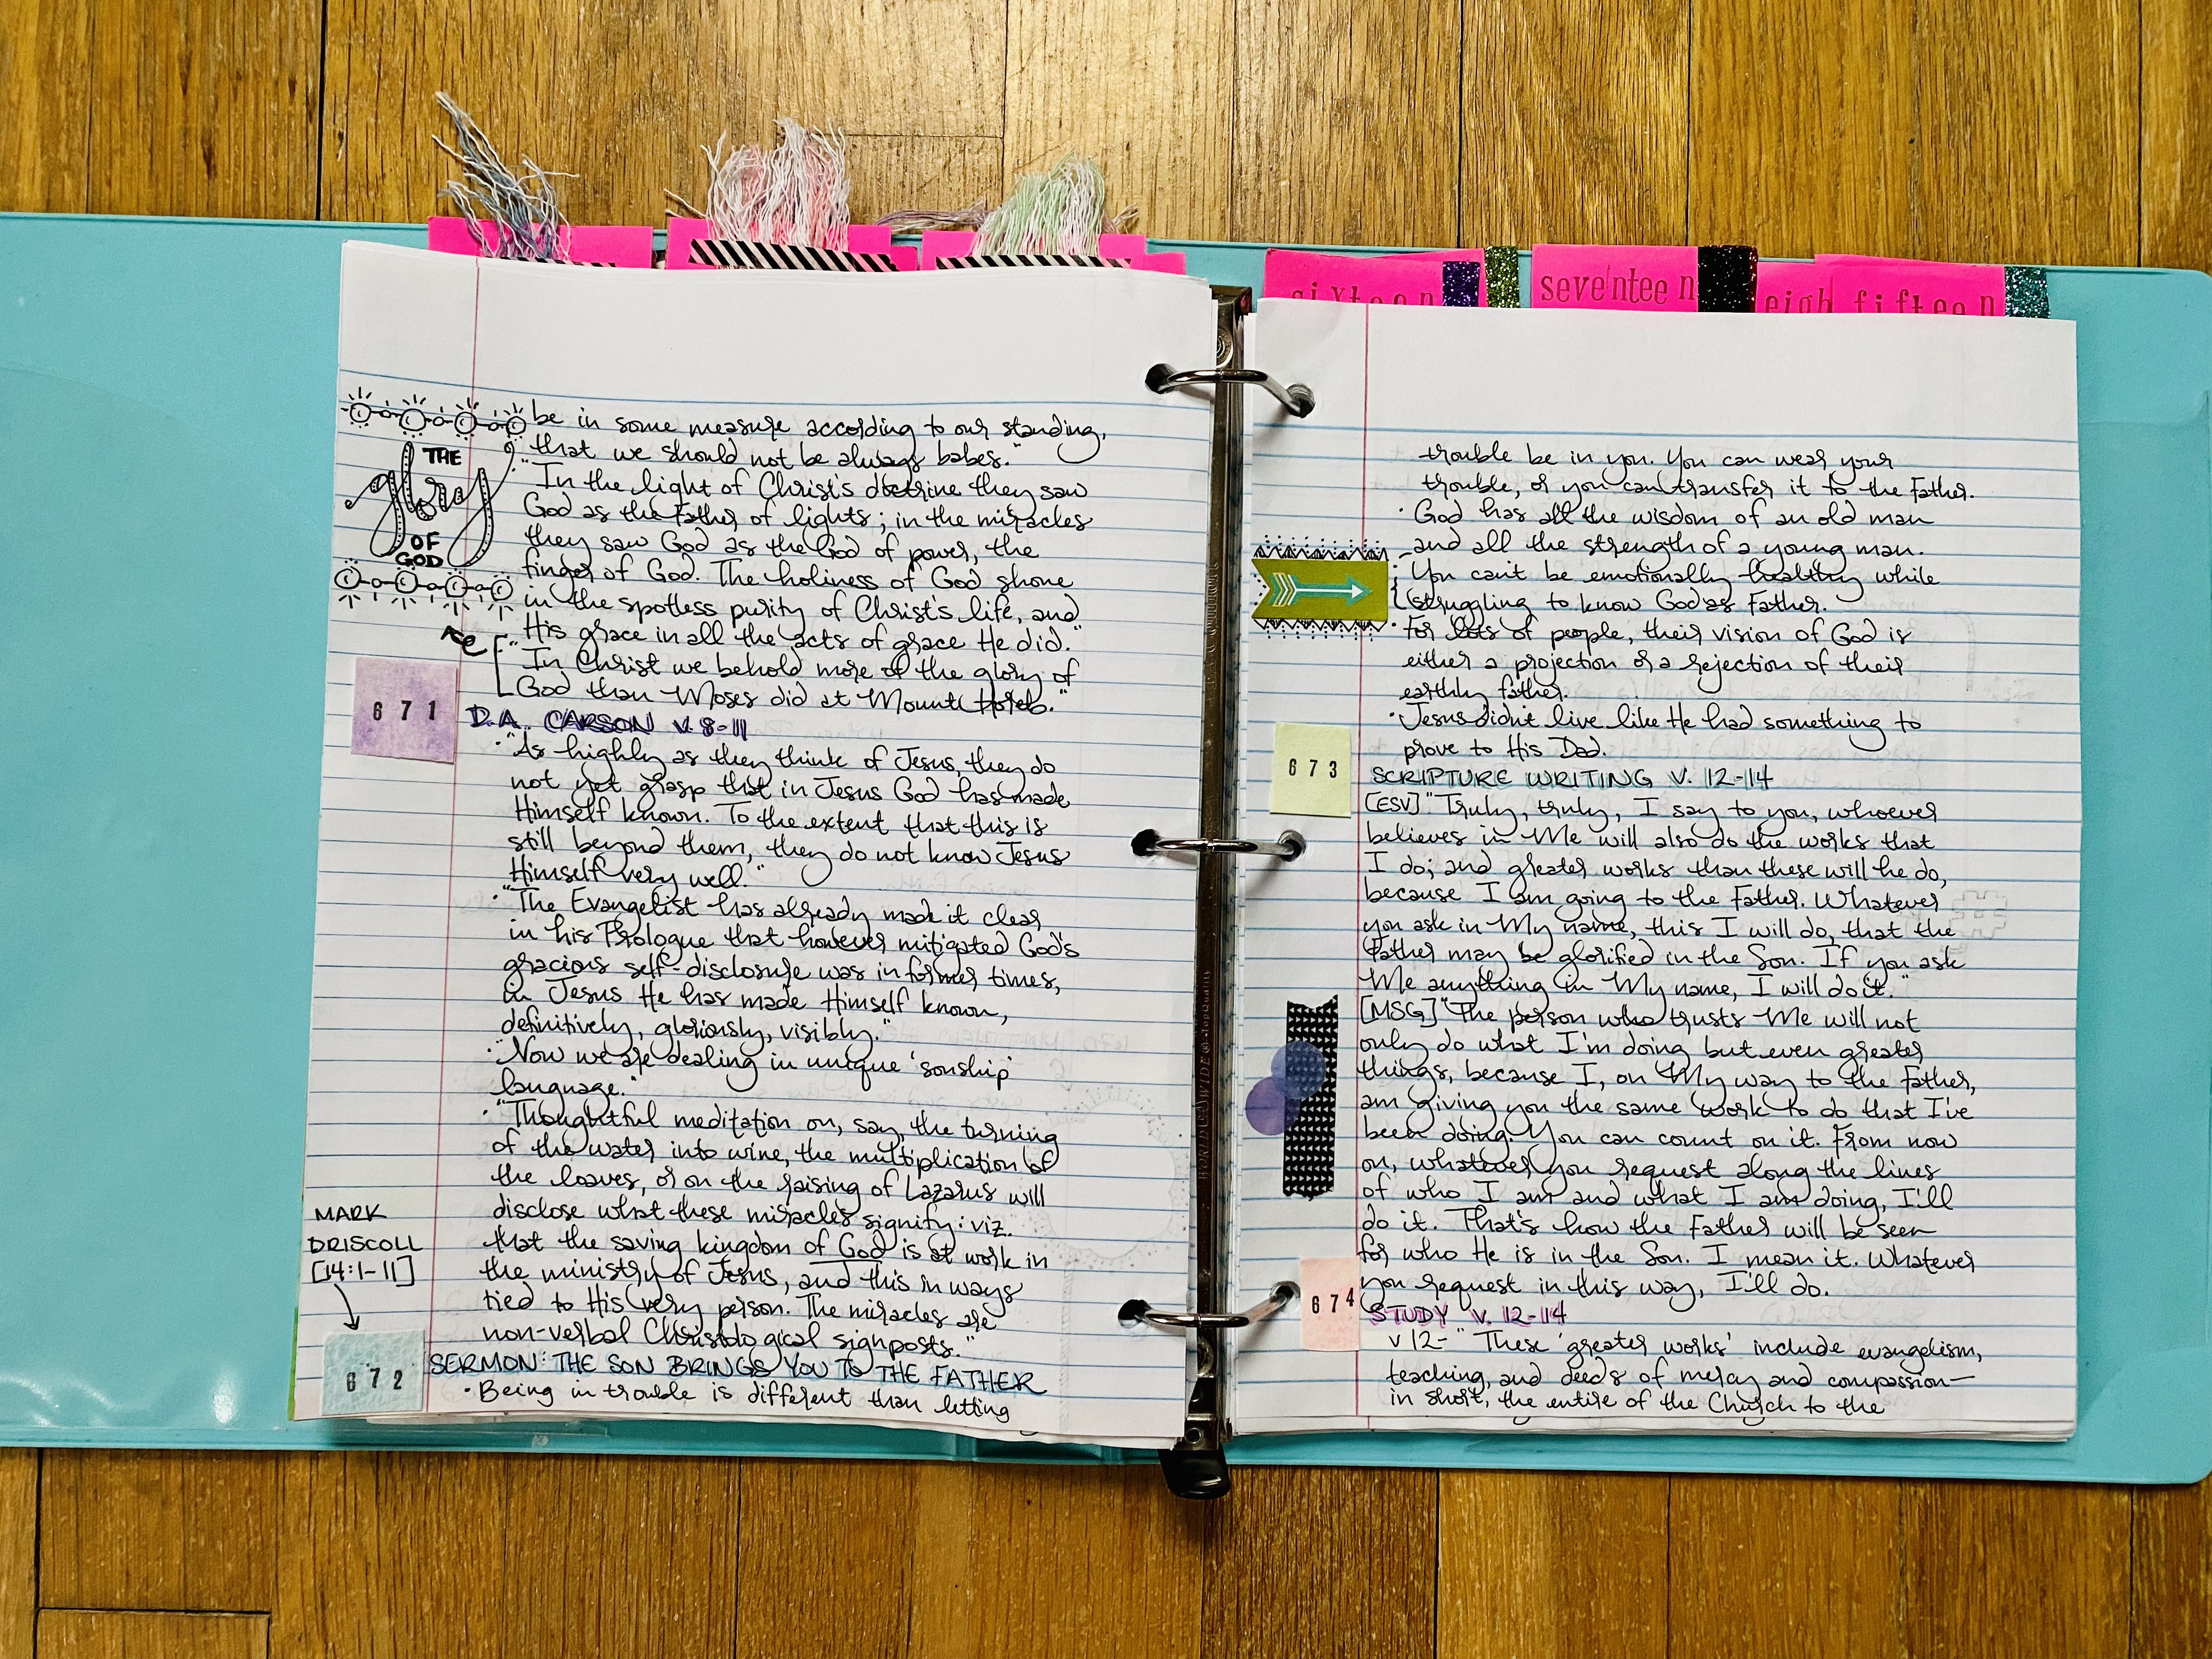 sixteen
seventeen
eigh
fifteen
THE
glory
OF
GOD
be in some measure according to our standing,
that we should not be always babes."
"In the light of Christ's doctrine they saw
God as the Father of lights; in the miracles
they saw God as the God of power, the
finger of God. The holiness of God shone
in the spotless purity of Christ's life, and
His grace in all the acts of grace He did."
"In Christ we behold more of the glory of
God than Moses did at Mount Horeb."
671
D.A. CARSON V. 8-11
• "As highly as they think of Jesus, they do
not yet grasp that in Jesus God has made
Himself known. To the extent that this is
still beyond them, they do not know Jesus
Himself very well."
• "The Evangelist has already made it clear
in his Prologue that however mitigated God's
gracious self-disclosure was in former times,
in Jesus He has made Himself known,
definitively, gloriously, visibly."
• "Now we are dealing in unique 'sonship'
language."
• "Thoughtful meditation on, say, the turning
of the water into wine, the multiplication of
the loaves, or on the raising of Lazarus will
disclose what these miracles signify: viz.
that the saving kingdom of God is at work in
the ministry of Jesus, and this in ways
tied to His very person. The miracles are
non-verbal Christological signposts."
MARK
DRISCOLL
[14:1-11]
672
SERMON: THE SON BRINGS YOU TO THE FATHER
• Being in trouble is different than letting
trouble be in you. You can wear your
trouble, or you can transfer it to the Father.
• God has all the wisdom of an old man
and all the strength of a young man.
• You can't be emotionally healthy while
struggling to know God as Father.
• For lots of people, their vision of God is
either a projection or a rejection of their
earthly father.
• Jesus didn't live like He had something to
prove to His Dad.
673
SCRIPTURE WRITING V. 12-14
[ESV] "Truly, truly, I say to you, whoever
believes in Me will also do the works that
I do; and greater works than these will he do,
because I am going to the Father. Whatever
you ask in My name, this I will do, that the
Father may be glorified in the Son. If you ask
Me anything in My name, I will do it."
[MSG] "The person who trusts Me will not
only do what I'm doing but even greater
things, because I, on My way to the Father,
am giving you the same work to do that I've
been doing. You can count on it. From now
on, whatever you request along the lines
of who I am and what I am doing, I'll
do it. That's how the Father will be seen
for who He is in the Son. I mean it. Whatever
you request in this way, I'll do.
674
STUDY V. 12-14
v 12- "These 'greater works' include evangelism,
teaching, and deeds of mercy and compassion—
in short, the entire of the Church to the